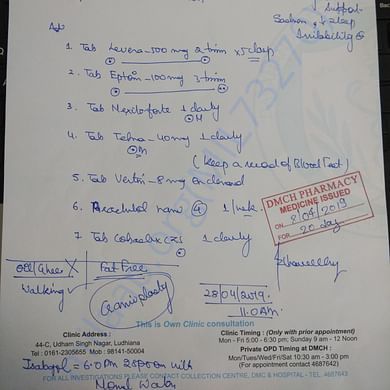 Support
↓ sleep
Irritability ⊕
Adv
1. Tab Levera-500 mg 2 times x 5 days
2. Tab Eptoin-100 mg 3 times
3. Tab Mexilofate 1 daily
4. Tab Telma-40 mg 1 daily
(Keep a record of Blood Test)
5. Tab Vertin-8 mg on demand
6. Paracetamol 4 1/week
7. Tab 1 daily
DMCH PHARMACY
MEDICINE ISSUED
ON 8/04/2019
FOR 20 day
Oil/Ghee X Fat Free
Walking ✓
Cranioplasty
28/04/2019
11.0 AM
This is Own Clinic consultation
Clinic Address :
44-C, Udham Singh Nagar, Ludhiana
Tel : 0161-2305655 Mob : 98141-50004
Clinic Timing : (Only with prior appointment)
Mon - Fri 5:00 - 6:30 pm; Sunday 9 am - 12 Noon
Private OPD Timing at DMCH :
Mon/Tues/Wed/Fri/Sat 10:30 am - 3:00 pm
(For appointment contact 4687642)
Isabgol = 6:0 PM 2 Spoon with
FOR ALL INVESTIGATIONS PLEASE CONTACT COLLECTION CENTRE, DMC & HOSPITAL - TEL. 4687643
Water